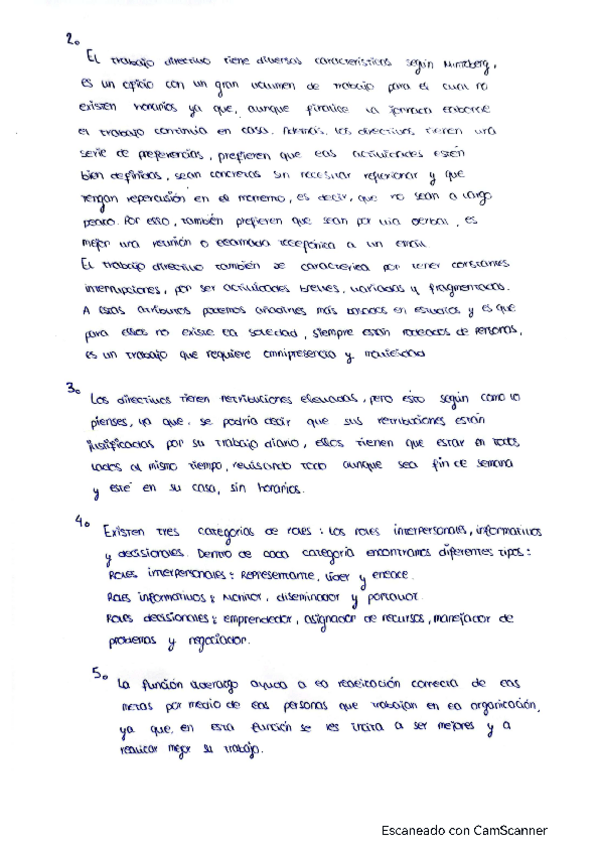 2.
El trabajo directivo tiene diversas características según Mintzberg,
es un oficio con un gran volumen de trabajo para el cual no
existen horarios ya que, aunque finalice la jornada laboral
el trabajo continúa en casa. Además, los directivos tienen una
serie de preferencias, prefieren que las actividades estén
bien definidas, sean concretas sin necesitar reflexionar y que
tengan repercusión en el momento, es decir, que no sean a largo
plazo. Por esto, también prefieren que sean por vía verbal, es
mejor una reunión o llamada telefónica a un email.
El trabajo directivo también se caracteriza por tener constantes
interrupciones, por ser actividades breves, variadas y fragmentadas.
A estos atributos podemos añadirles más basados en estudios y es que
para ellos no existe la soledad, siempre están rodeados de personas,
es un trabajo que requiere omnipresencia y movilidad
3.
Los directivos tienen retribuciones elevadas, pero esto según como lo
pienses, ya que se podría decir que sus retribuciones están
justificadas por su trabajo diario, ellos tienen que estar en todos
lados al mismo tiempo, revisando todo aunque sea fin de semana
y esté en su casa, sin horarios.
4.
Existen tres categorías de roles: Los roles interpersonales, informativos
y decisionales. Dentro de cada categoría encontramos diferentes tipos:
Roles interpersonales: Representante, líder y enlace.
Roles informativos: Monitor, diseminador y portavoz.
Roles decisionales: emprendedor, asignador de recursos, manejador de
problemas y negociador.
5.
La función liderazgo ayuda a la realización correcta de las
metas por medio de las personas que trabajan en la organización,
ya que, en esta función se les incita a ser mejores y a
realizar mejor su trabajo.
Escaneado con CamScanner